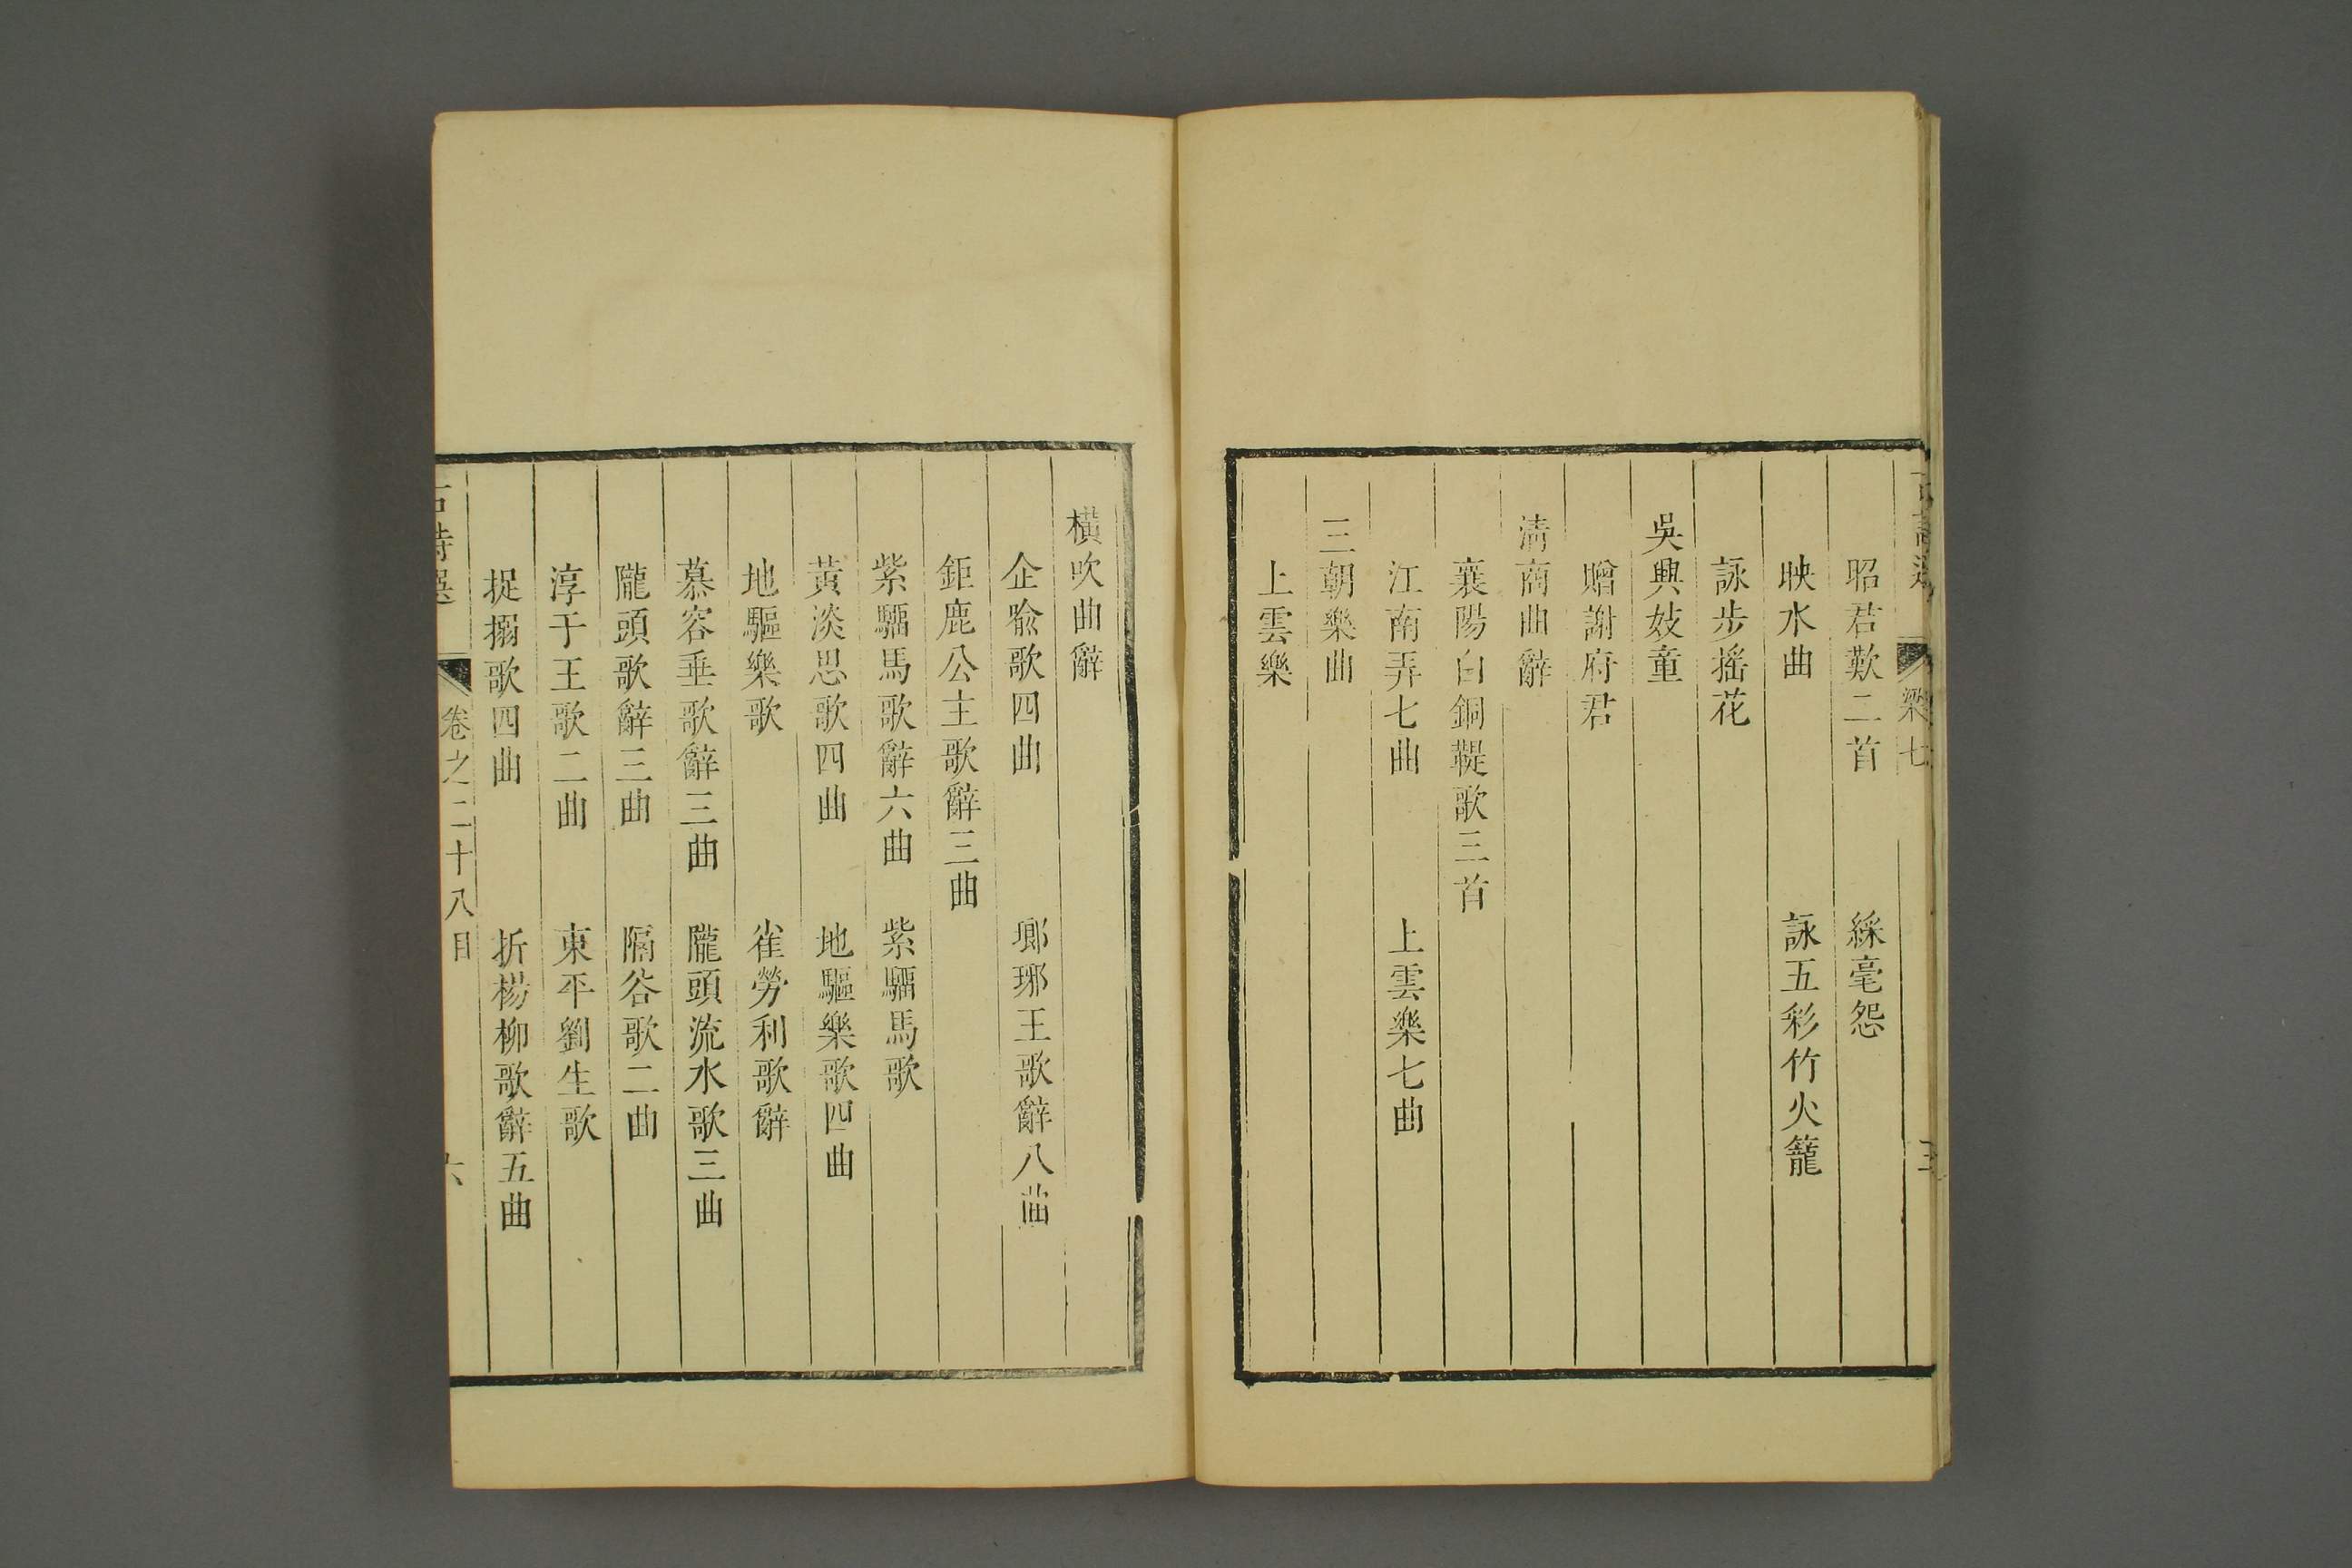 昭君歎二首　綵毫怨
映水曲　詠五彩竹火籠
詠步搖花
吳興妓童
贈謝府君
清商曲辭
襄陽白銅鞮歌三首
江南弄七曲　上雲樂七曲
三朝樂曲
上雲樂
橫吹曲辭
企喩歌四曲　瑯琊王歌辭八曲
鉅鹿公主歌辭三曲
紫騮馬歌辭六曲　紫騮馬歌
黃淡思歌四曲　地驅樂歌四曲
地驅樂歌　雀勞利歌辭
慕容垂歌辭三曲　隴頭流水歌三曲
隴頭歌辭三曲　隔谷歌二曲
淳于王歌二曲　東平劉生歌
捉搦歌四曲　折楊柳歌辭五曲
古詩選　卷之二十八目　六